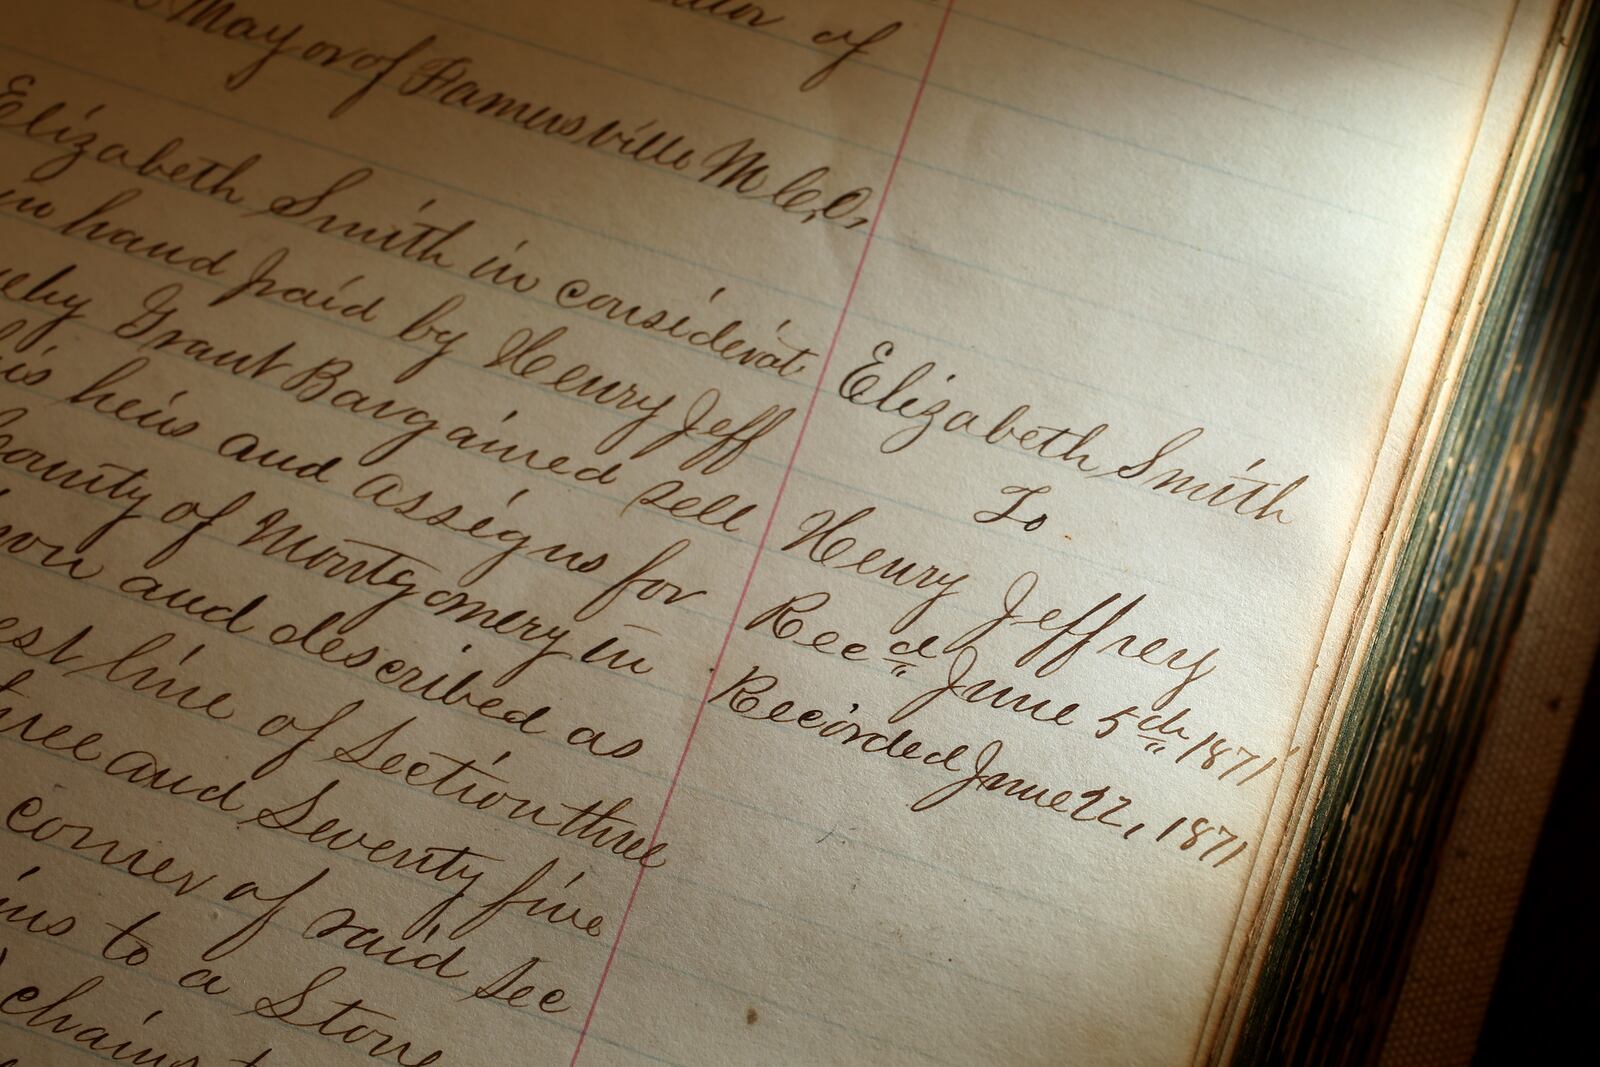 of
Mayor of Farmersville M.C.O.
Elizabeth Smith in considerat
in hand paid by Henry Jeff
Grant Bargained Sell
his heirs and assigns for
County of Montgomery in
and described as
est line of Section three
three and Seventy five
corner of said Sec
ins to a Stone
chains
Elizabeth Smith
To
Henry Jeffrey
Recd June 5th 1871
Recorded June 22, 1871